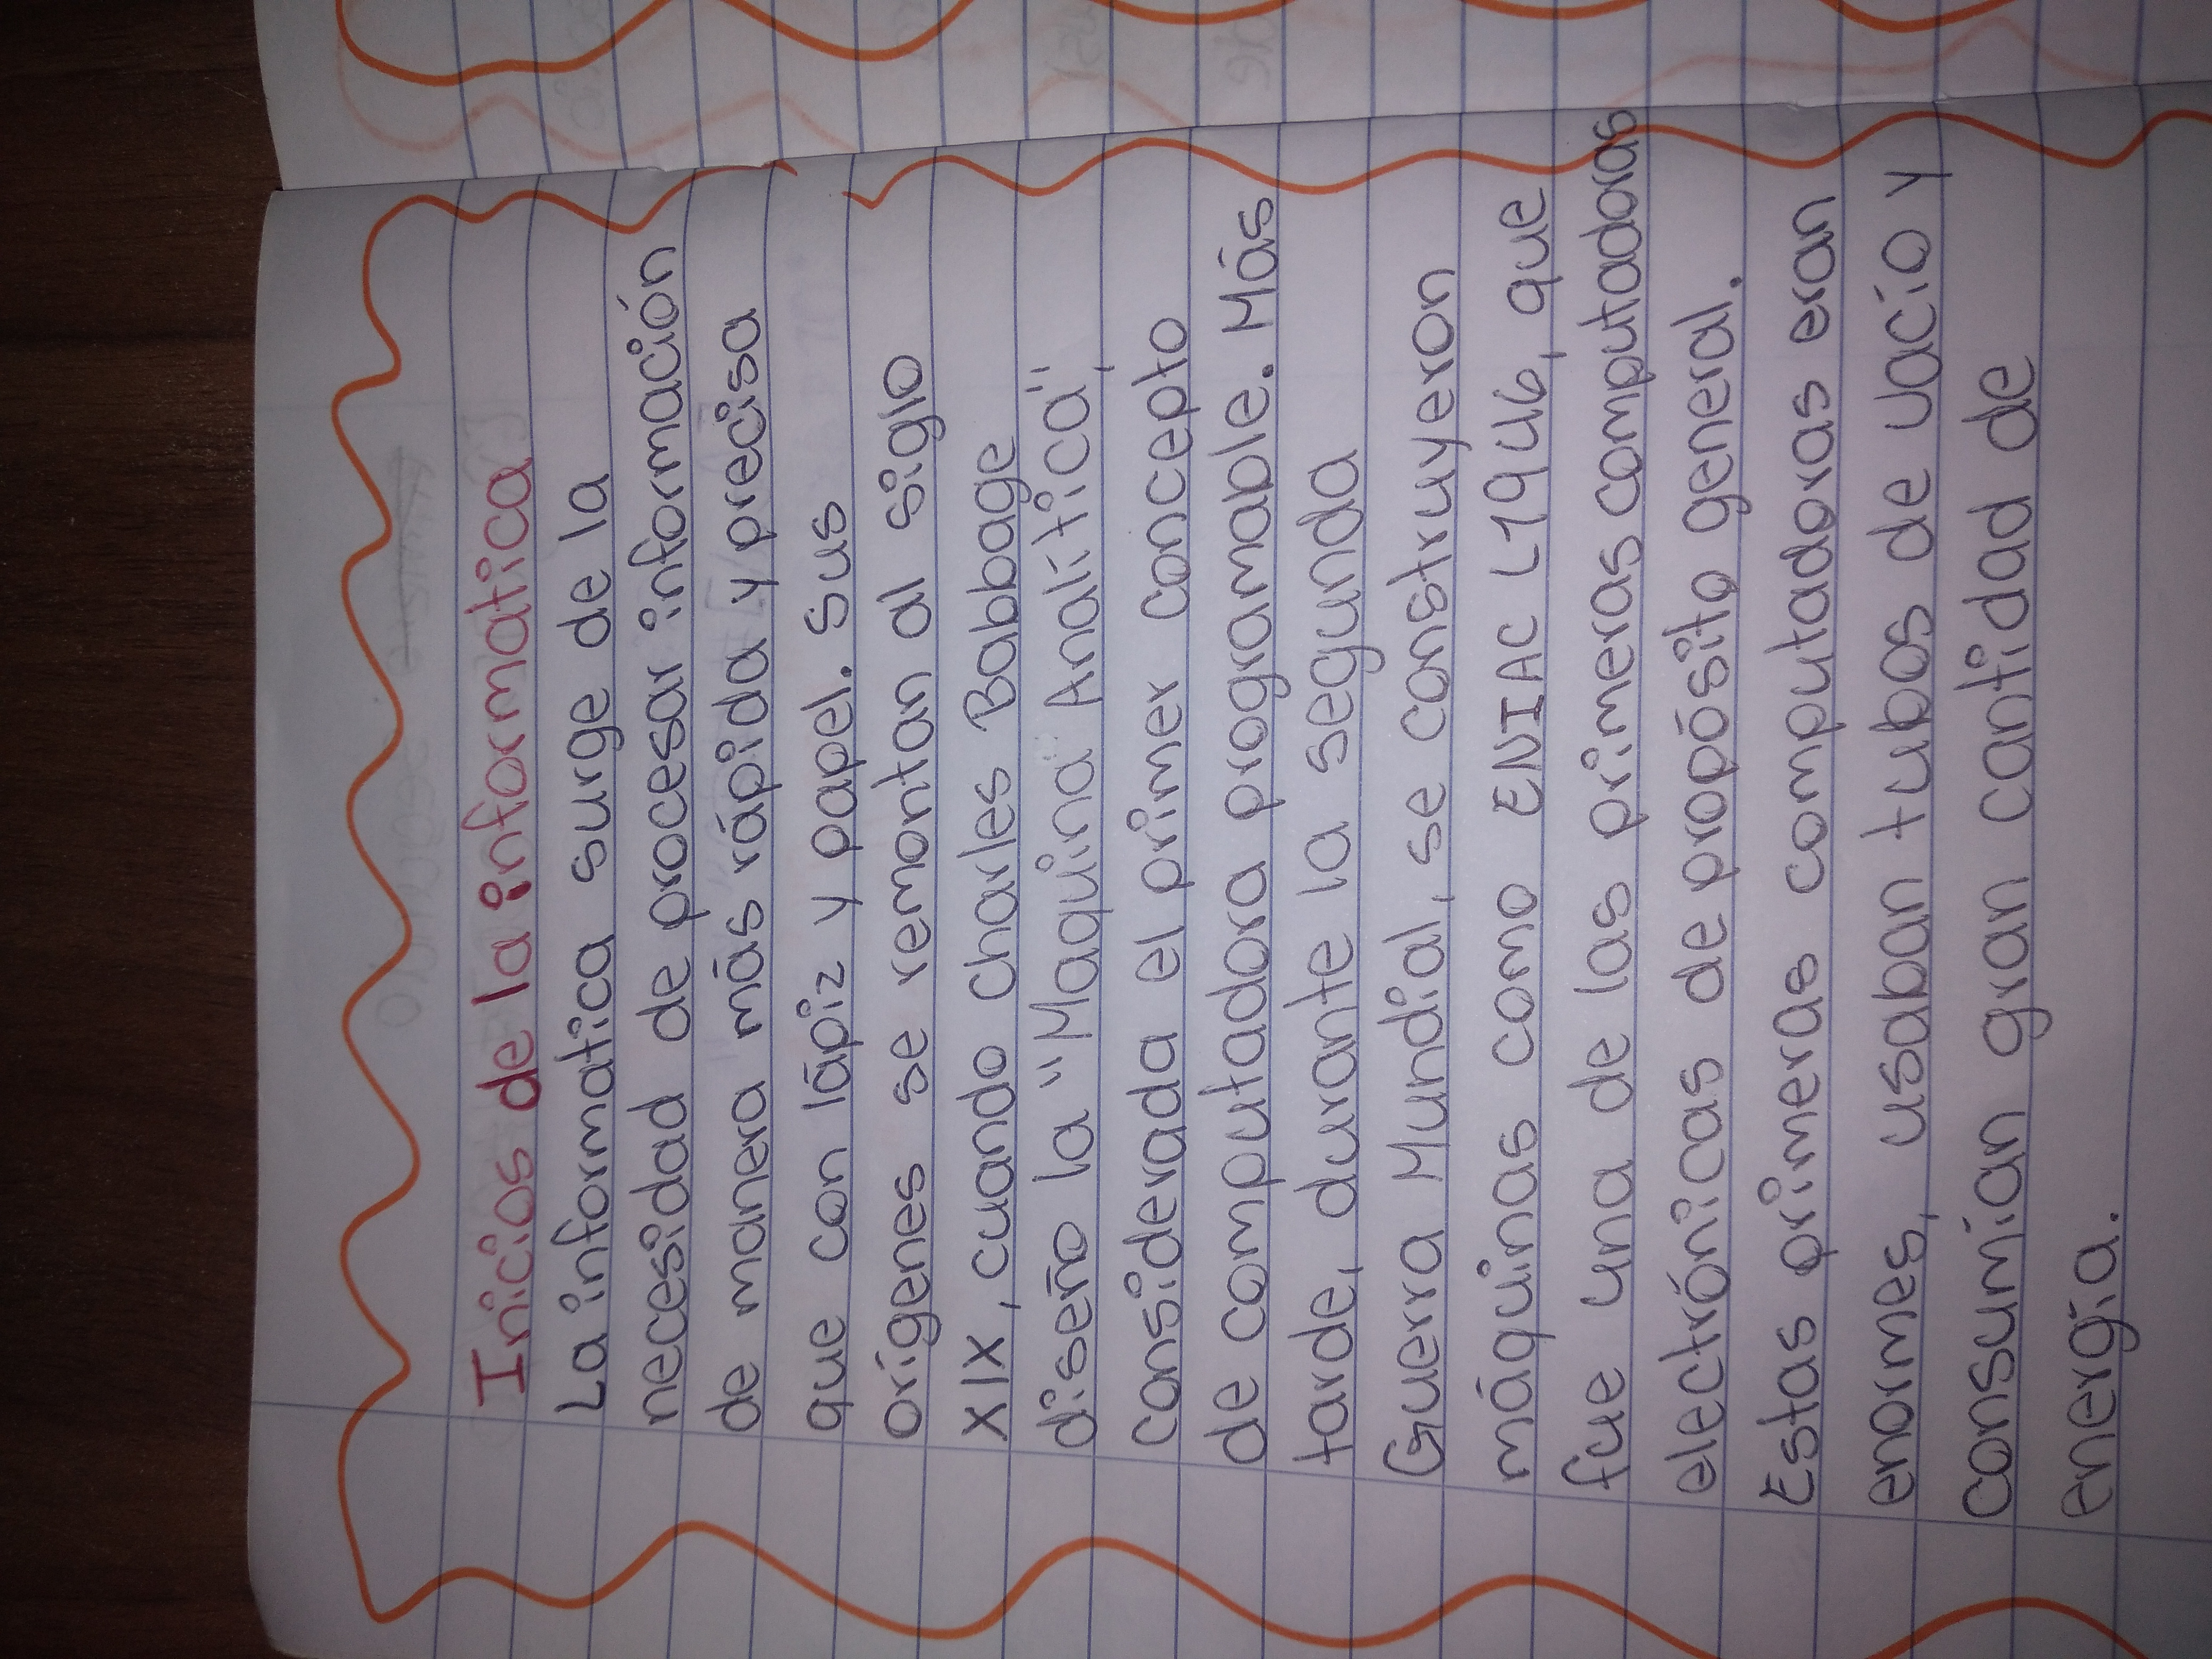 Inicios de la informatica
La informatica surge de la
necesidad de procesar información
de manera más rápida y precisa
que con lápiz y papel. Sus
orígenes se remontan al siglo
XIX, cuando charles Babbage
diseño la "Maquina Analítica",
considerada el primer concepto
de computadora programable. Más
tarde, durante la segunda
Guerra Mundial, se construyeron
máquinas como ENIAC L1946, que
fue una de las primeras computadoras
electrónicas de propósito general.
Estas primeras computadoras eran
enormes, usaban tubos de vacío y
consumían gran cantidad de
energía.